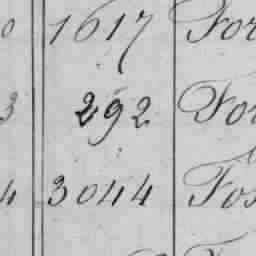 0 1617 For
3 292 For
4 3044 Fos